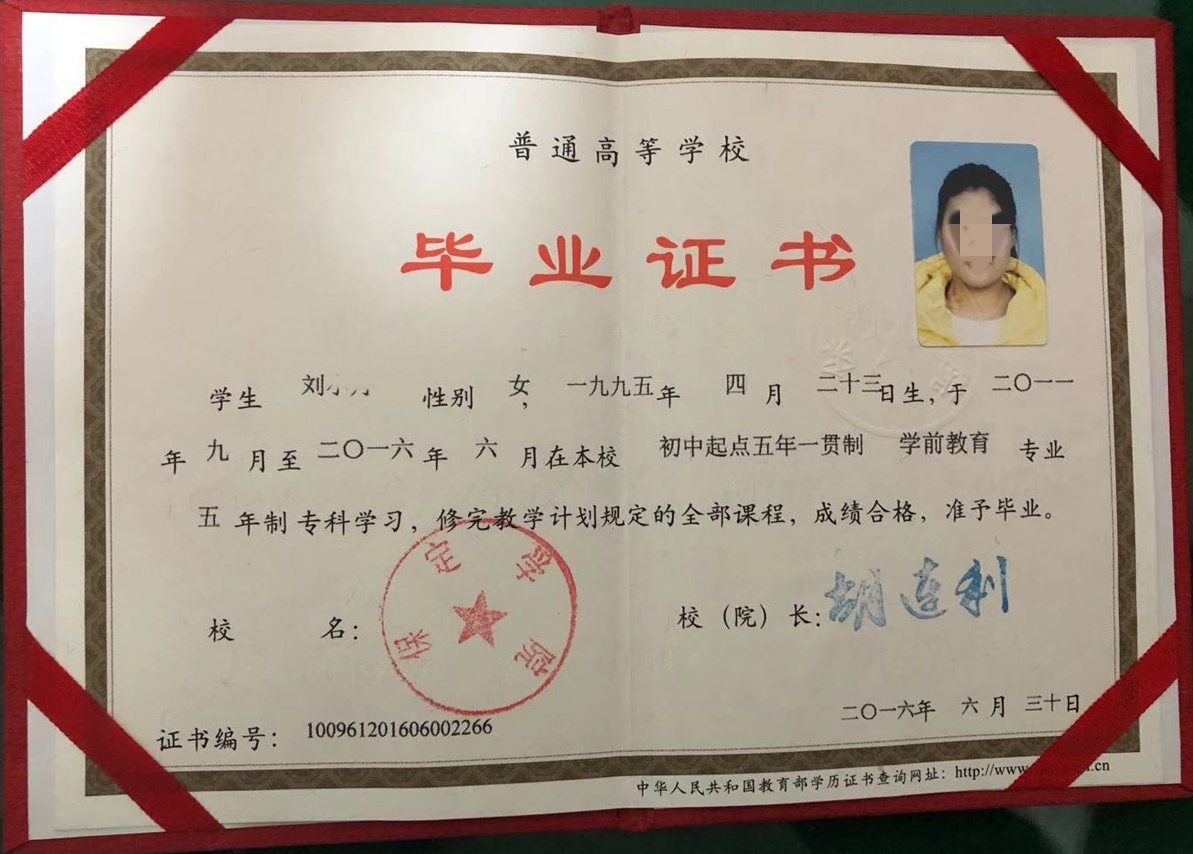 普通高等学校
毕业证书
学生 刘 性别 女, 一九九五年 四月 二十三日生,于 二〇一一
年 九月至 二〇一六年 六月在本校 初中起点五年一贯制 学前教育 专业
五年制 专科学习,修完教学计划规定的全部课程,成绩合格,准予毕业。
保定学院
校 名: 校(院)长:胡连利
二〇一六年 六月 三十日
证书编号: 100961201606002266
中华人民共和国教育部学历证书查询网址:http://www .cn